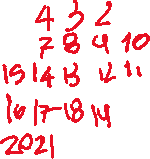 4 3 2
7 8 4 10
15 14 13 12 11
16 17 18 14
2021